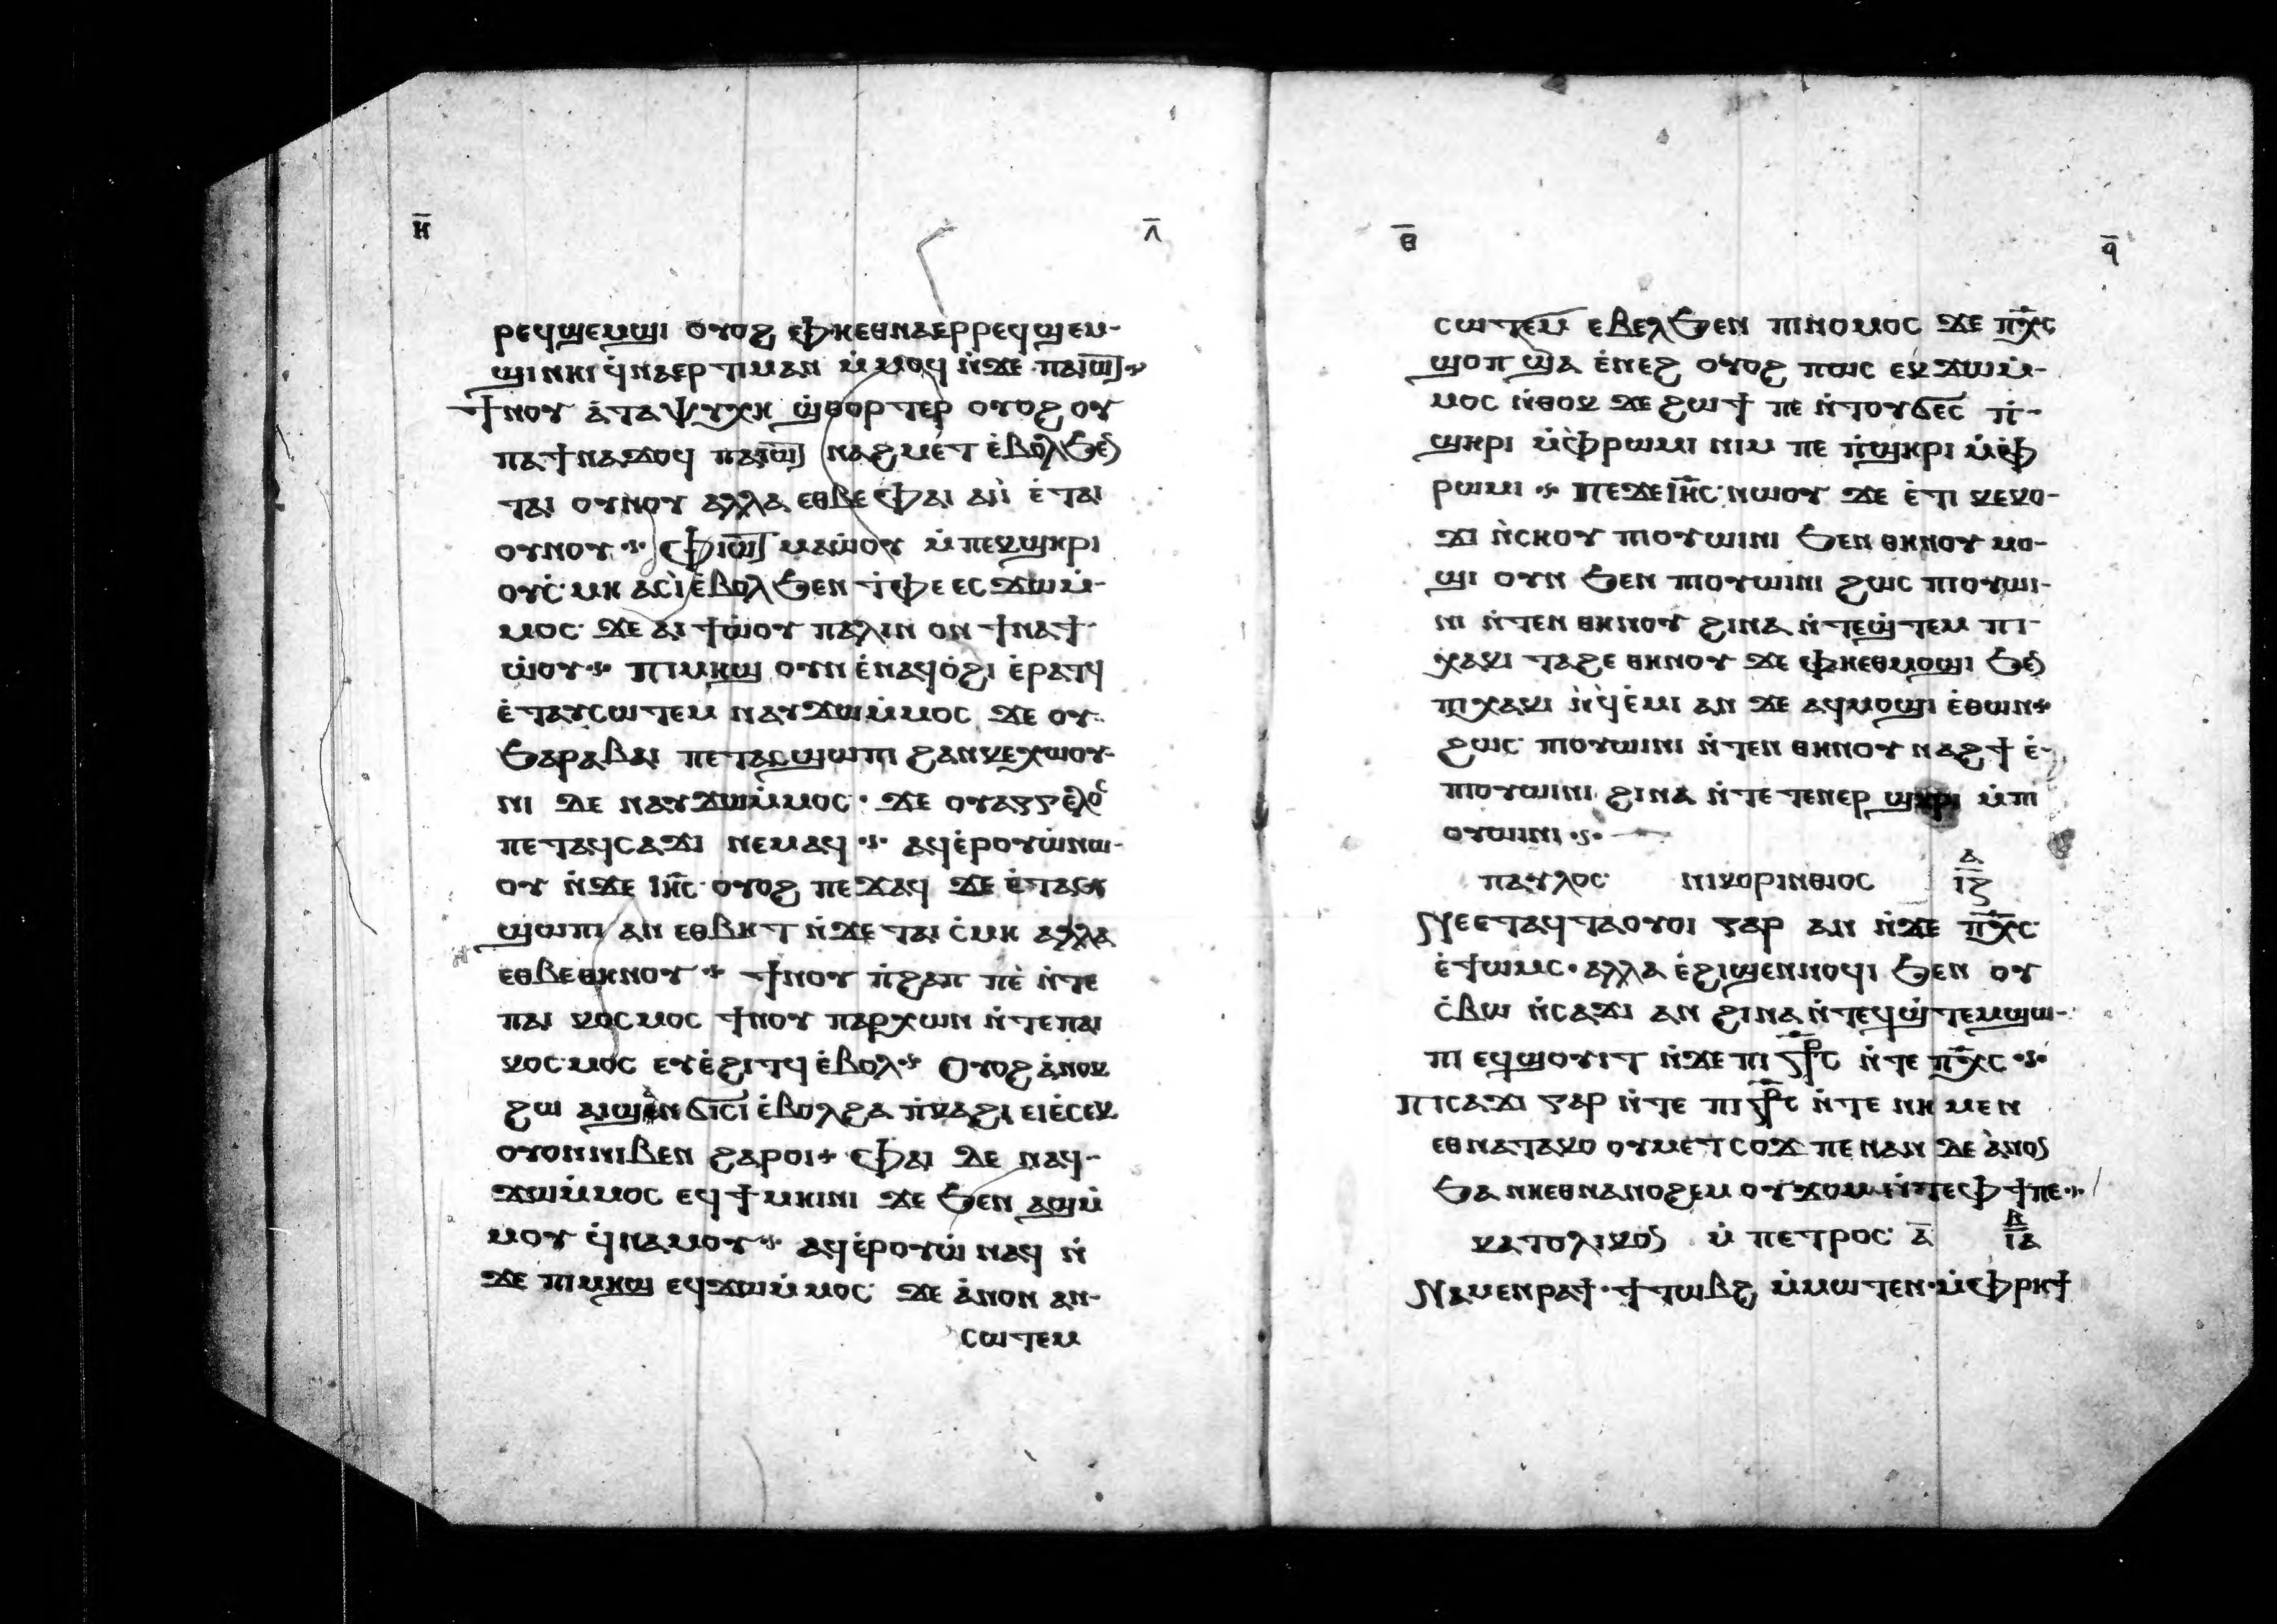 ⲏ̅ ⲗ̅
ⲣⲉϥϣⲉⲙϣⲓ ⲟⲩⲟϩ ⲫⲏⲉⲑⲛⲁⲉⲣⲣⲉϥϣⲉⲙ-
ϣⲓ ⲛⲏⲓ ϥ̇ⲛⲁⲉⲣⲧⲓⲙⲁⲛ ⲙ̇ⲙⲟϥ ⲛ̇ϫⲉ ⲡⲁⲓⲱ̅ⲧ
ϯⲛⲟⲩ ⲁ̇ⲧⲁⲯⲩⲭⲏ ϣ̇ⲑⲟⲣⲧⲉⲣ ⲟⲩⲟϩ ⲟⲩ
ⲡⲉϯⲛⲁϫⲟϥ ⲡⲁⲓⲱ̅ⲧ ⲛⲁϩⲙⲉⲧ ⲉ̇ⲃⲟⲗϧⲉⲛ
ⲧⲁⲓ ⲟⲩⲛⲟⲩ ⲁⲗⲗⲁ ⲉⲑⲃⲉ ⲫⲁⲓ ⲁⲓ̇ ⲉ̇ⲧⲁⲓ
ⲟⲩⲛⲟⲩ ⲫⲓⲱ̅ⲧ ⲙⲁⲱ̇ⲟⲩ ⲙ̇ⲡⲉⲕϣⲏⲣⲓ
ⲟⲩⲥ̇ⲙⲏ ⲁⲥⲓ̇ ⲉ̇ⲃⲟⲗϧⲉⲛ ⲧ̇ⲫⲉ ⲉⲥϫⲱⲙ̇-
ⲙⲟⲥ ϫⲉ ⲁⲓϯⲱ̇ⲟⲩ ⲡⲁⲗⲓⲛ ⲟⲛ ϯⲛⲁϯ
ⲱ̇ⲟⲩ ⲡⲓⲙⲏϣ ⲟⲩⲛ ⲉ̇ⲛⲁϥⲟ̇ϩⲓ ⲉ̇ⲣⲁⲧϥ
ⲉ̇ⲧⲁⲩⲥⲱⲧⲉⲙ ⲛⲁⲩϫⲱⲙ̇ⲙⲟⲥ ϫⲉ ⲟⲩ
ϧⲁⲣⲁⲃⲁⲓ ⲡⲉⲧⲁⲥϣⲱⲡⲓ ϩⲁⲛⲕⲉⲭⲱⲟⲩ-
ⲛⲓ ϫⲉ ⲛⲁⲩϫⲱⲙ̇ⲙⲟⲥ ϫⲉ ⲟⲩⲁⲅⲅⲉⲗⲟⲥ
ⲡⲉⲧⲁϥⲥⲁϫⲓ ⲛⲉⲙⲁϥ ⲁϥⲉ̇ⲣⲟⲩⲱ̇ ⲛⲱ-
ⲟⲩ ⲛ̇ϫⲉ ⲓⲏ̅ⲥ ⲟⲩⲟϩ ⲡⲉϫⲁϥ ϫⲉ ⲉ̇ⲧⲁⲥ
ϣⲱⲡⲓ ⲁⲛ ⲉⲑⲃⲏⲧ ⲛ̇ϫⲉ ⲧⲁⲓ ⲥ̇ⲙⲏ ⲁⲗⲗⲁ
ⲉⲑⲃⲉⲑⲏⲛⲟⲩ ϯⲛⲟⲩ ⲡ̇ϩⲁⲡ ⲡⲉ̇ ⲛ̇ⲧⲉ
ⲡⲁⲓ ⲕⲟⲥⲙⲟⲥ ϯⲛⲟⲩ ⲡⲁⲣⲭⲱⲛ ⲛ̇ⲧⲉⲡⲁⲓ
ⲕⲟⲥⲙⲟⲥ ⲉⲩⲉ̇ϩⲓⲧϥ ⲉ̇ⲃⲟⲗ ⲟⲩⲟϩ ⲁ̇ⲛⲟⲕ
ϩⲱ ⲁⲓϣⲁⲛϭⲓⲥⲓ ⲉ̇ⲃⲟⲗϩⲁ ⲡ̇ⲕⲁϩⲓ ⲉⲓⲉ̇ⲥⲉⲕ
ⲟⲩⲟⲛⲛⲓⲃⲉⲛ ϩⲁⲣⲟⲓ ⲫⲁⲓ ⲇⲉ ⲛⲁϥ-
ϫⲱⲙ̇ⲙⲟⲥ ⲉϥϯⲙⲏⲓⲛⲓ ϫⲉ ϧⲉⲛ ⲁϣⲙ̇
ⲙⲟⲩ ϥ̇ⲛⲁⲙⲟⲩ ⲁϥⲉ̇ⲣⲟⲩⲱ̇ ⲛⲁϥ ⲛ̇
ϫⲉ ⲡⲓⲙⲏϣ ⲉϥϫⲱⲙ̇ⲙⲟⲥ ϫⲉ ⲁ̇ⲛⲟⲛ ⲁⲛ-
ⲥⲱⲧⲉⲙ
ⲑ̅ ϥ̅
ⲥⲱⲧⲉⲙ ⲉⲃⲉⲗϧⲉⲛ ⲡⲓⲛⲟⲙⲟⲥ ϫⲉ ⲡⲭ̅ⲥ
ϣⲟⲡ ϣⲁ ⲉ̇ⲛⲉϩ ⲟⲩⲟϩ ⲡⲱⲥ ⲉⲕϫⲱⲙ̇-
ⲙⲟⲥ ⲛ̇ⲑⲟⲕ ϫⲉ ϩⲱϯ ⲡⲉ ⲛ̇ⲧⲟⲩϭⲉⲥ ⲡ̇-
ϣⲏⲣⲓ ⲙ̇ⲫⲣⲱⲙⲓ ⲛⲓⲙ ⲡⲉ ⲡ̇ϣⲏⲣⲓ ⲙ̇ⲫ
ⲣⲱⲙⲓ ⲡⲉϫⲉ ⲓⲏ̅ⲥ ⲛⲱⲟⲩ ϫⲉ ⲉ̇ⲧⲓ ⲕⲉⲕⲟ-
ϫⲓ ⲛ̇ⲥⲏⲟⲩ ⲡⲓⲟⲩⲱⲓⲛⲓ ϧⲉⲛ ⲑⲏⲛⲟⲩ ⲙⲟ-
ϣⲓ ⲟⲩⲛ ϧⲉⲛ ⲡⲓⲟⲩⲱⲓⲛⲓ ϩⲱⲥ ⲡⲓⲟⲩⲱⲓ-
ⲛⲓ ⲛ̇ⲧⲉⲛ ⲑⲏⲛⲟⲩ ϩⲓⲛⲁ ⲛ̇ⲧⲉϣ̇ⲧⲉⲙ ⲡⲓ-
ⲭⲁⲕⲓ ⲧⲁϩⲉ ⲑⲏⲛⲟⲩ ϫⲉ ⲫⲏⲉⲑⲙⲟϣⲓ ϧⲉⲛ
ⲡⲓⲭⲁⲕⲓ ⲛ̇ϥⲉ̇ⲙⲓ ⲁⲛ ϫⲉ ⲁϥⲙⲟϣⲓ ⲉ̇ⲑⲱⲛ
ϩⲱⲥ ⲡⲓⲟⲩⲱⲓⲛⲓ ⲛ̇ⲧⲉⲛ ⲑⲏⲛⲟⲩ ⲛⲁϩϯ ⲉ̇-
ⲡⲓⲟⲩⲱⲓⲛⲓ ϩⲓⲛⲁ ⲛ̇ⲧⲉⲧⲉⲛⲉⲣ ϣⲏⲣⲓ ⲙ̇ⲡⲓ
ⲟⲩⲱⲓⲛⲓ
ⲡⲁⲩⲗⲟⲥ ⲛⲓⲕⲟⲣⲓⲛⲑⲓⲟⲥ ⲁ̅ ⲓⲍ
ⲛⲉⲉⲧⲁϥⲧⲁⲟⲩⲟⲓ ⲅⲁⲣ ⲁⲛ ⲛ̇ϫⲉ ⲡⲭ̅ⲥ
ⲉ̇ϯⲱⲙⲥ ⲁⲗⲗⲁ ⲉ̇ϩⲓϣⲉⲛⲛⲟⲩϥⲓ ϧⲉⲛ ⲟⲩ
ⲥ̇ⲃⲱ ⲛ̇ⲥⲁϫⲓ ⲁⲛ ϩⲓⲛⲁ ⲛ̇ⲧⲉϥϣ̇ⲧⲉⲙϣⲱ-
ⲡⲓ ⲉϥϣⲟⲩⲓⲧ ⲛ̇ϫⲉ ⲡⲓⲥⳁⲥ ⲛ̇ⲧⲉ ⲡⲭ̅ⲥ
ⲡⲓⲥⲁϫⲓ ⲅⲁⲣ ⲛ̇ⲧⲉ ⲡⲓⳁⲥ ⲛ̇ⲧⲉ ⲛⲏ ⲙⲉⲛ
ⲉⲑⲛⲁⲧⲁⲕⲟ ⲟⲩⲙⲉⲧⲥⲟϫ ⲡⲉ ⲛⲁⲛ ⲇⲉ ⲁ̇ⲛⲟⲛ
ϧⲁ ⲛⲏⲉⲑⲛⲁⲛⲟϩⲉⲙ ⲟⲩϫⲟⲙ ⲛ̇ⲧⲉⲫϯ ⲡⲉ
ⲕⲁⲧⲟⲗⲓⲕⲟⲛ ⲙ̇ ⲡⲉⲧⲣⲟⲥ ⲁ̅ ⲃ̅ ⲓⲁ
ⲛⲁⲙⲉⲛⲣⲁϯ ϯⲧⲱⲃϩ ⲙ̇ⲙⲱⲧⲉⲛ ⲙ̇ⲫⲣⲏϯ